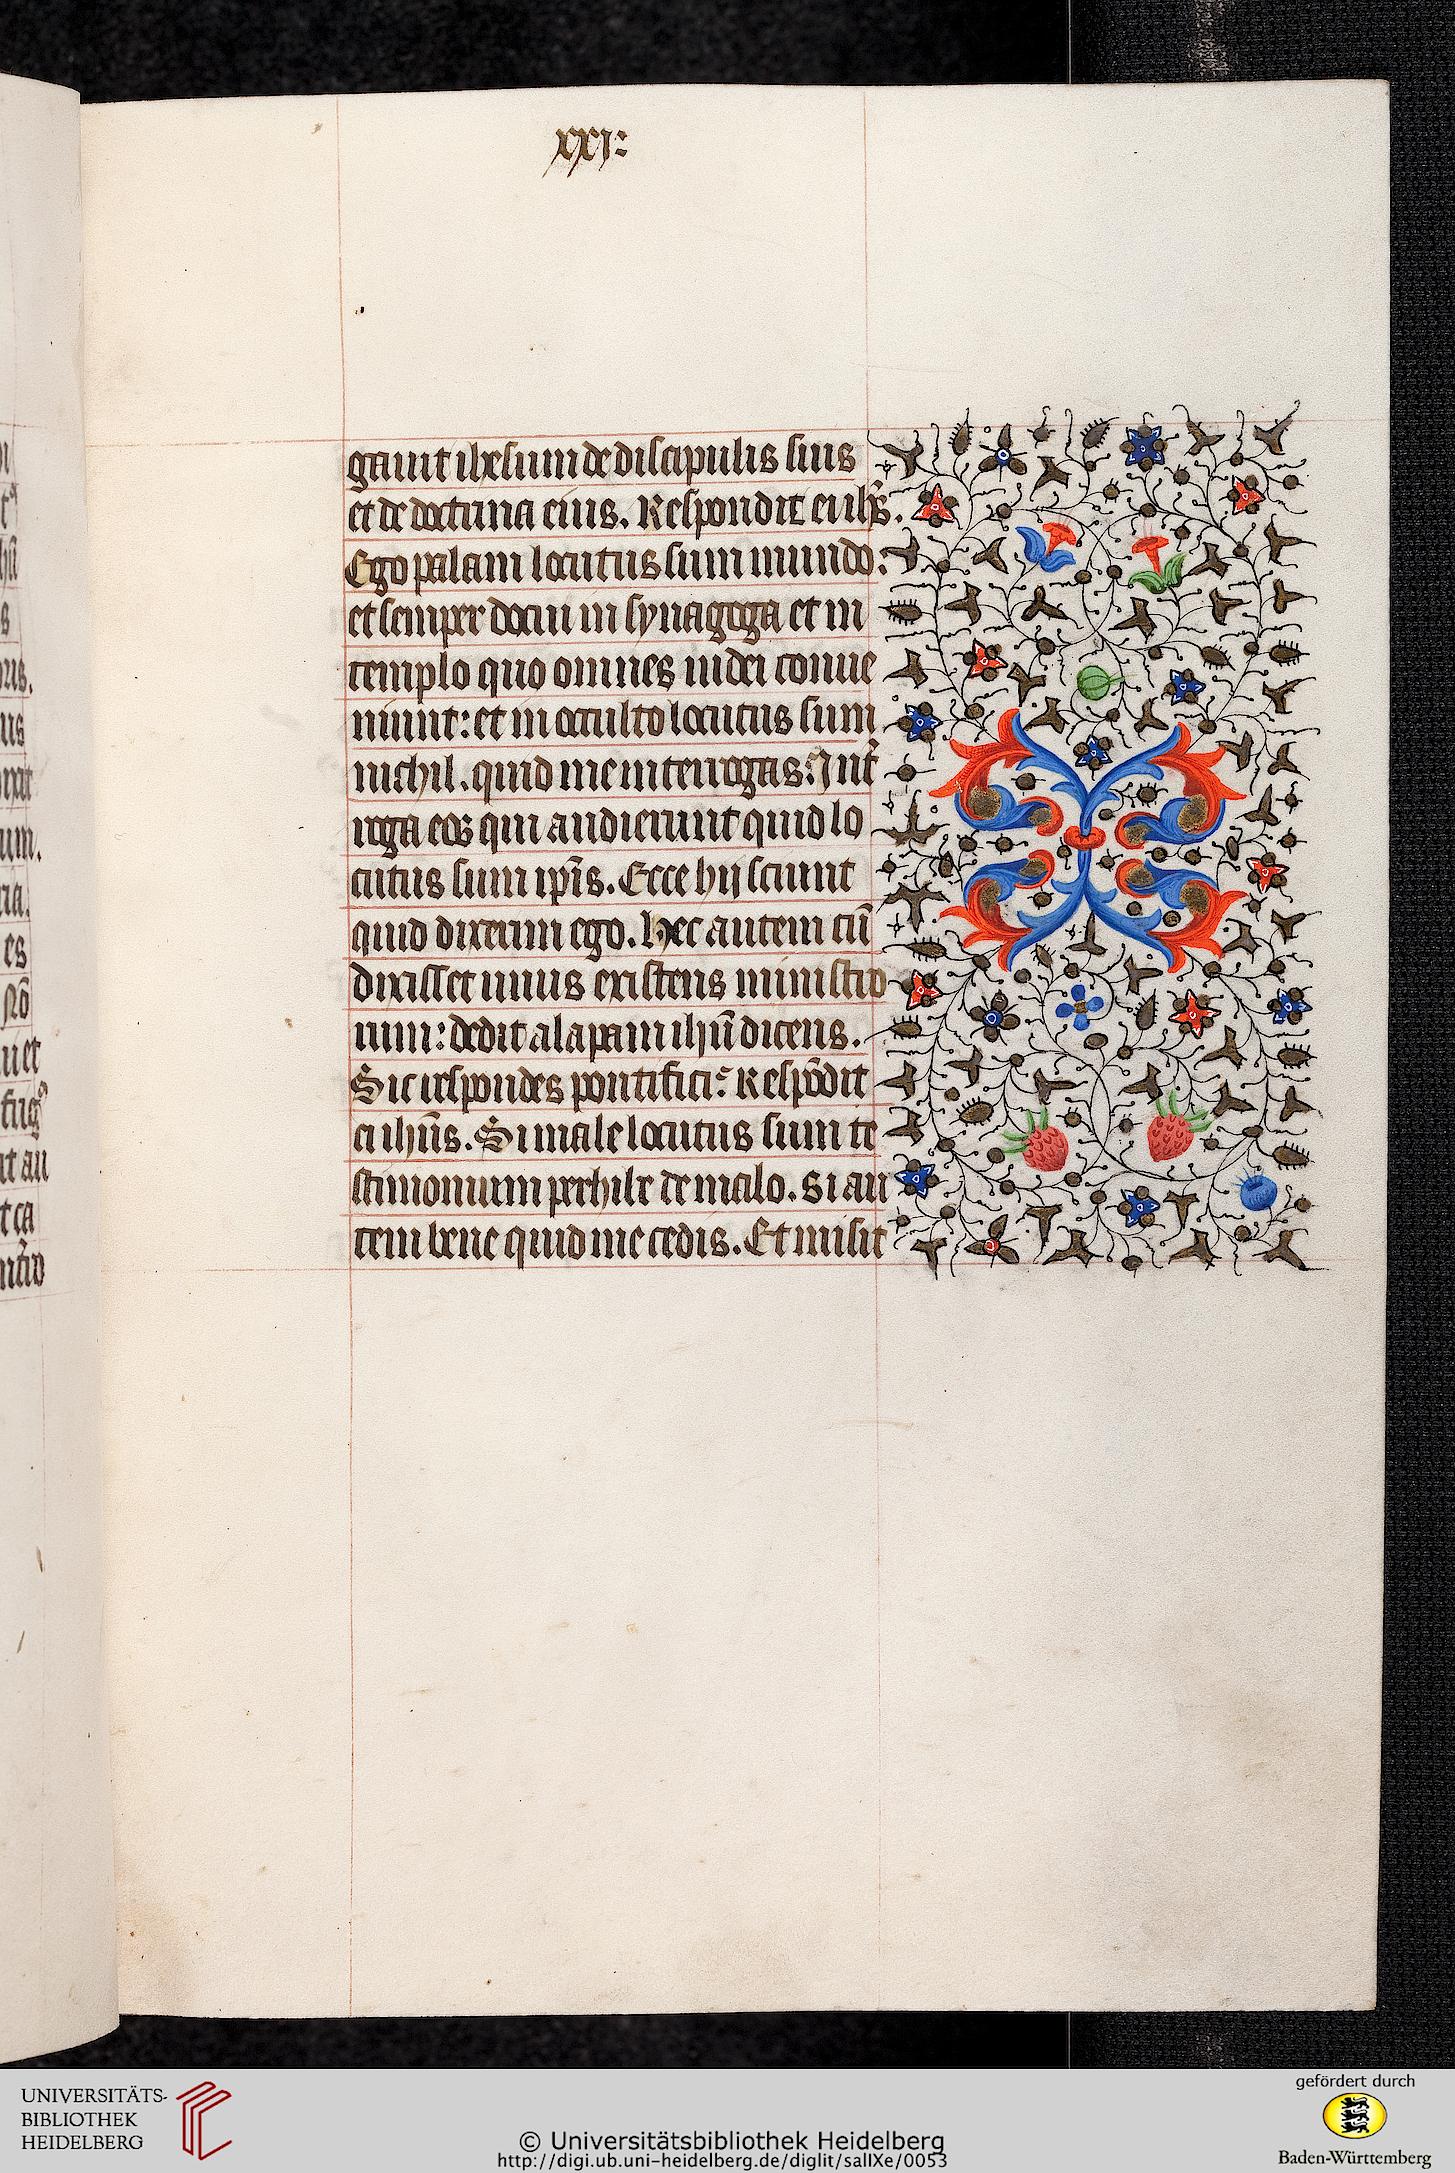 xxi:
gauit ihesum de discipulis suis
et de doctrina eius. Respondit ei ihs̄.
Ego palam locutus sum mundo:
et semper docui in synagoga et in
templo quo omnes iudei conue
niunt: et in occulto locutus sum
nichil. quid me interrogas: Int̄
roga eos qui audierunt quid lo
cutus sum ip̄is. Ecce hij sciunt
quid dixerim ego. Hec autem cū
dixisset unus existens ministro
rum: dedit alapam ihū dicens.
Sic respondes pontifici: Respōdit
ei ihūs. Si male locutus sum te
stimonium perhibe de malo. Si au
tem bene quid me cedis. Et misit
es
Nō
UNIVERSITÄTS-
BIBLIOTHEK
HEIDELBERG
© Universitätsbibliothek Heidelberg
http://digi.ub.uni-heidelberg.de/diglit/salIXe/0053
gefördert durch
Baden-Württemberg